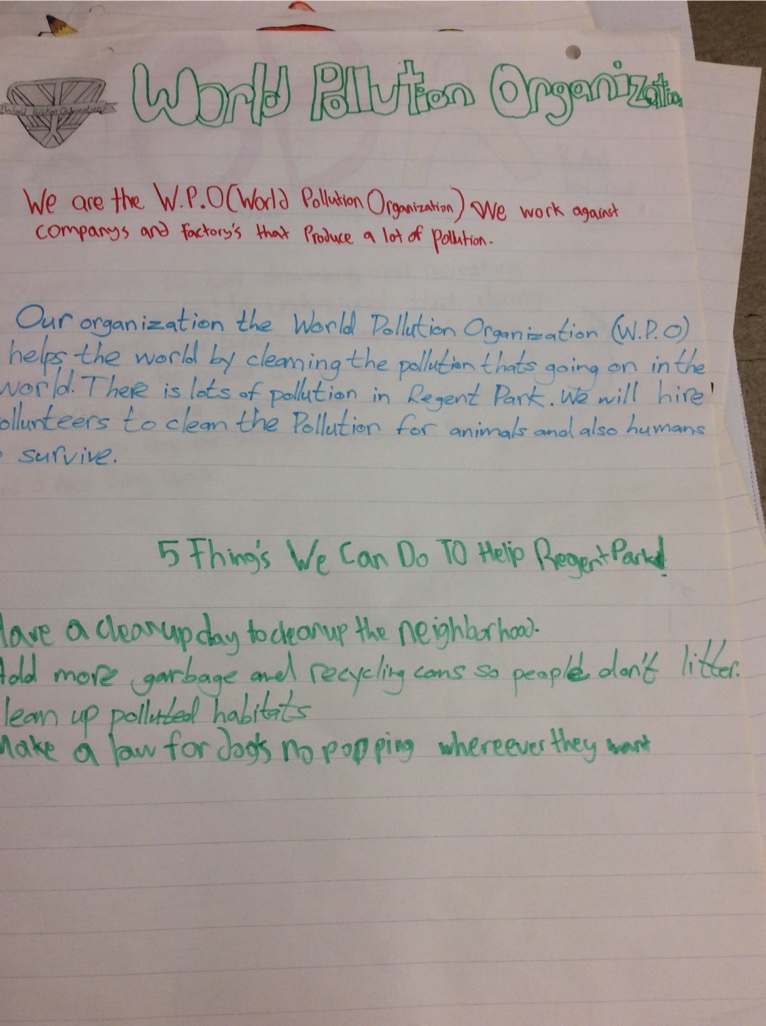 World Pollution Organization
World Pollution Organization
We are the W.P.O (World Pollution Organization) We work against
companys and factory's that Produce a lot of pollution.
Our organization the World Pollution Organization (W.P.O)
helps the world by cleaming the pollution thats going on in the
world. There is lots of pollution in Regent Park. We will hire
ollunteers to clean the Pollution for animals and also humans
survive.
5 Thing's We Can Do TO Help Regent Park!
Have a cleanup day to cleanup the neighborhood.
Add more garbage and recycling cans so people don't litter.
lean up polluted habitats
Make a law for dogs no popping whereever they want